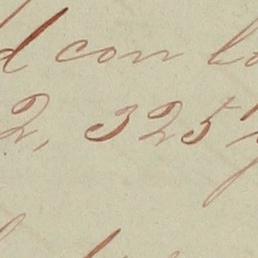 d con lo
2, 325